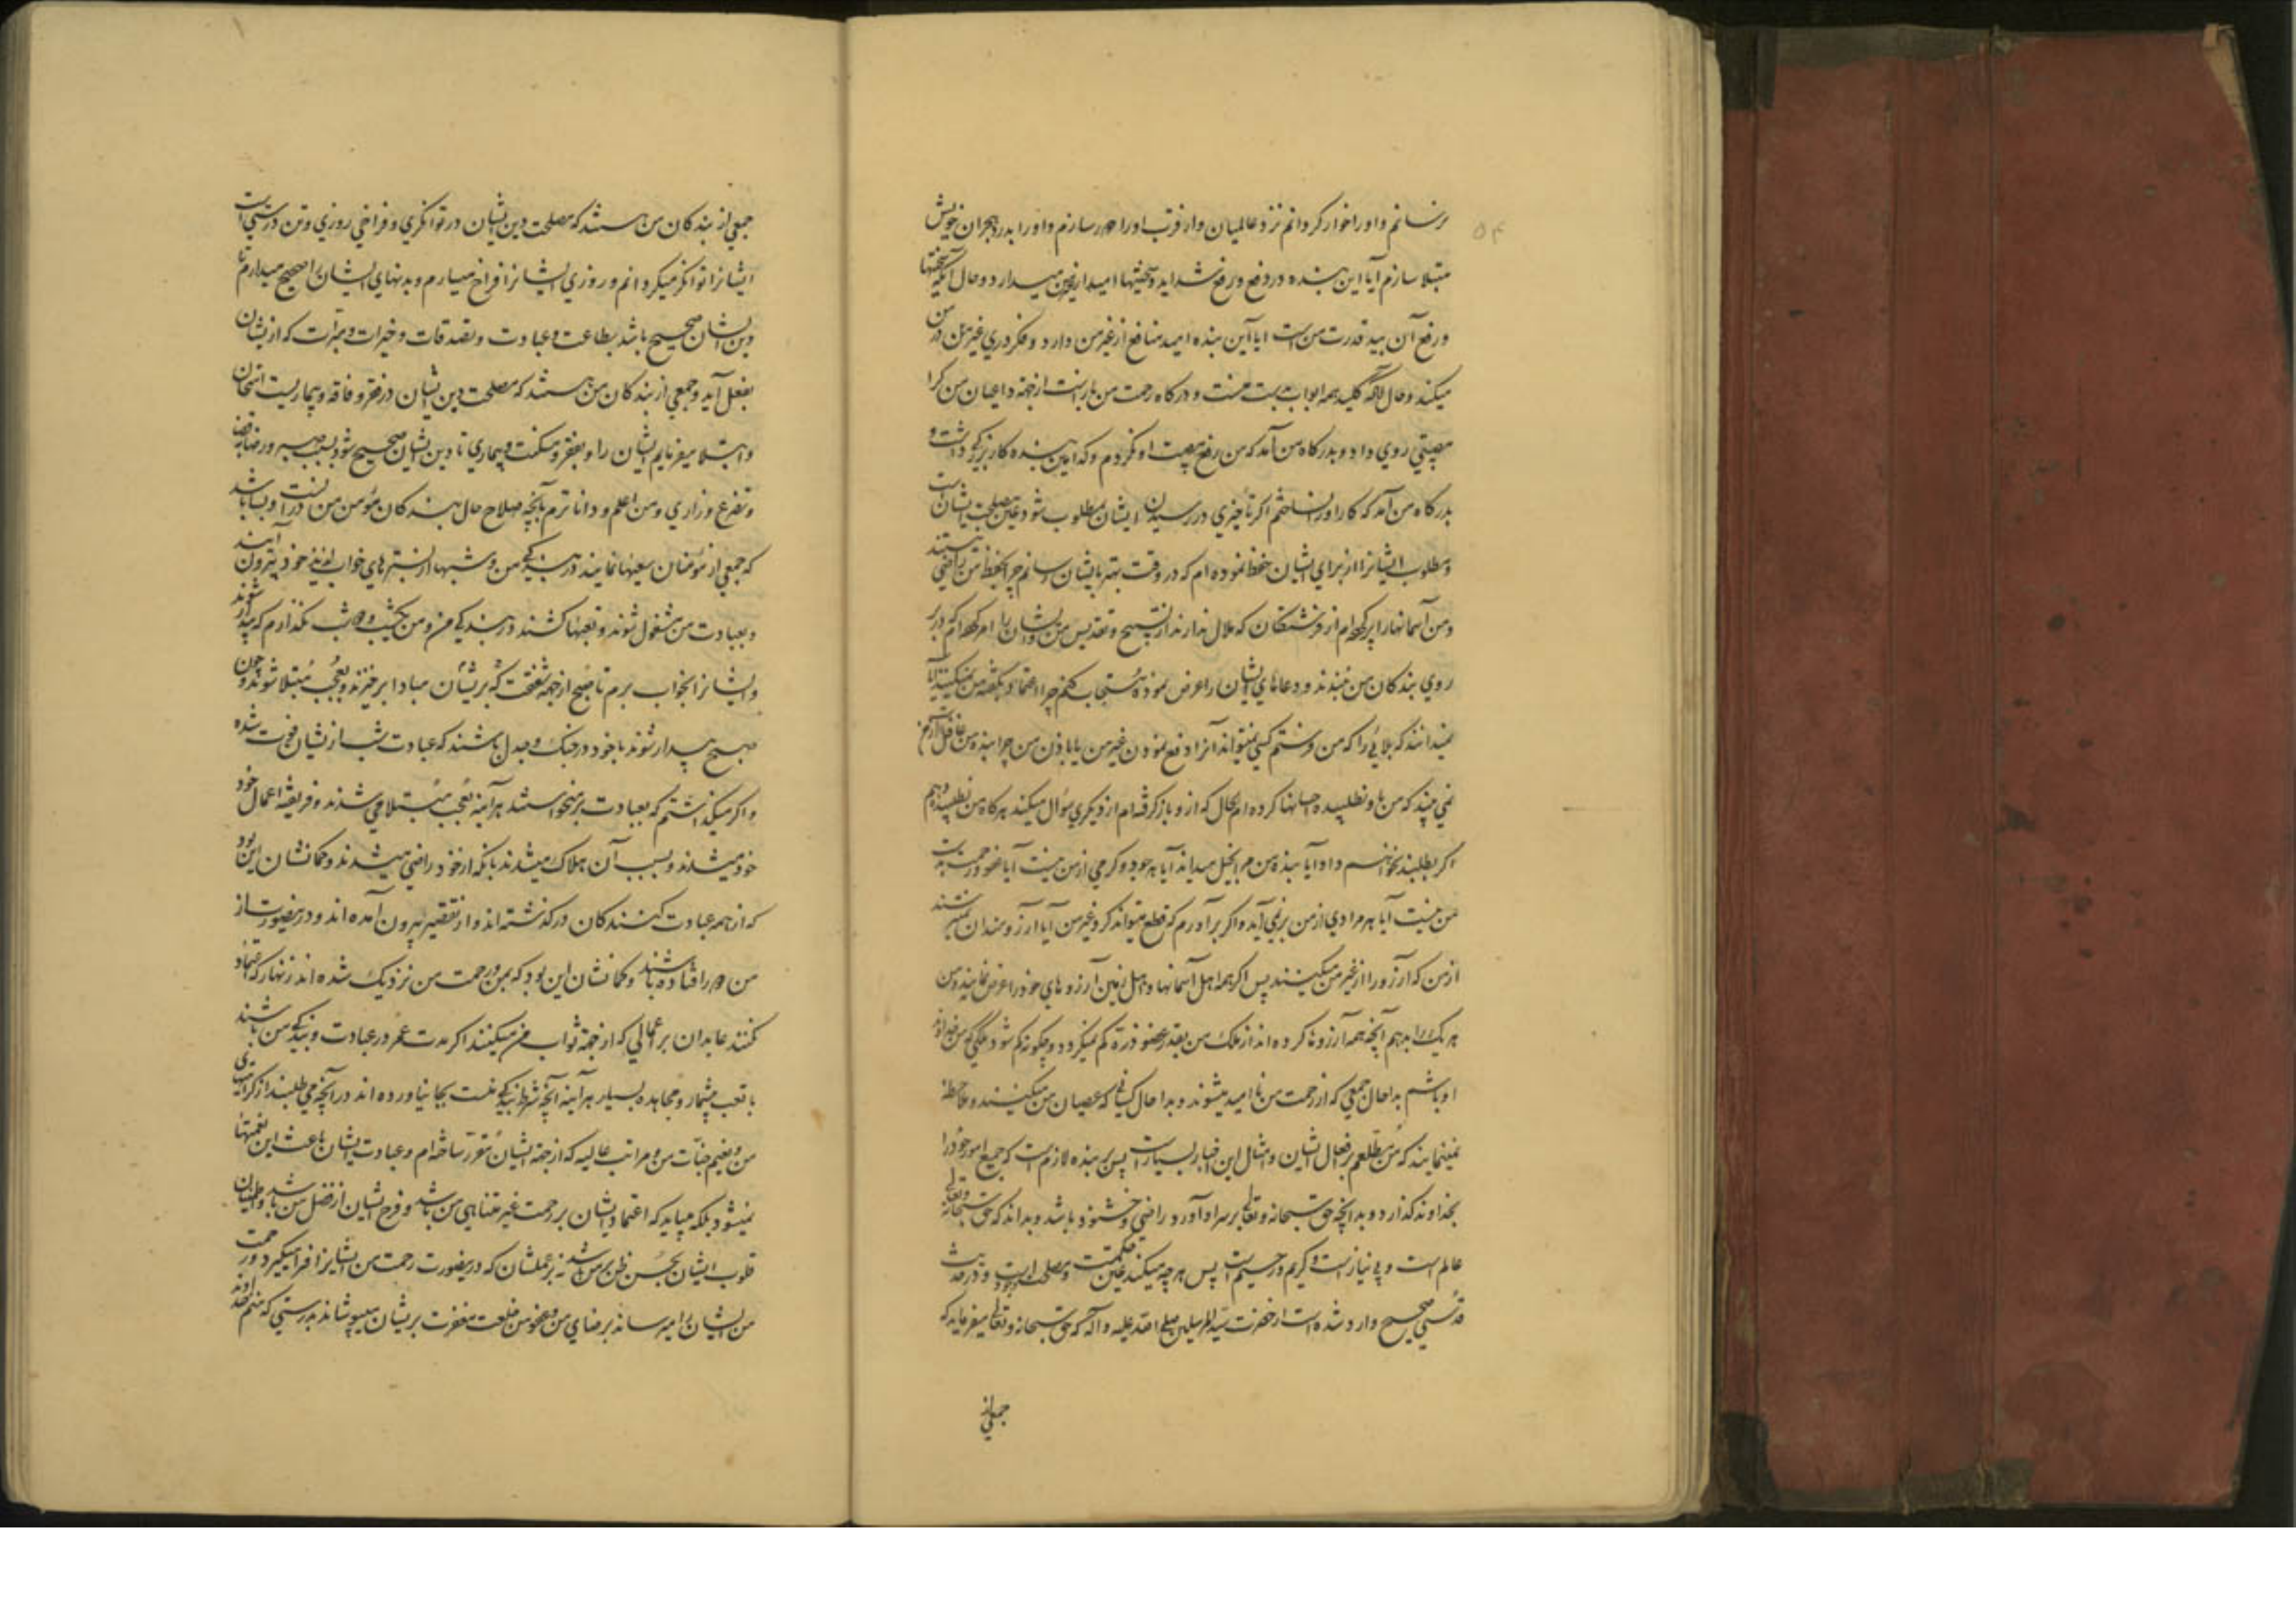 ۵۴
برسانم و او را خوار کردانم نزد عالمیان و از قرب او را دور سازم و او را بدرد هجران خویش
مبتلا سازم آیا این بنده در دفع و رفع شداید و سختیها امید از غیر من میدارد و حال آنکه سختیها
و رفع آن بید قدرت من است ایا این بنده امید منافع از غیر من دارد و فکر دری غیر من در من
میکند و حال آنکه کلید همه ابواب بدست منست و درکاه رحمت من باز است از جهة داعیان من کرا
مصیبتی روی داد و بدرکاه من آمد که من رفع مصیبت او نکردم و کدامین بنده کار بزرکی داشت و
بدرکاه من آمد که کار او را نساختم اکر تأخیری در رسیدن ایشان بمطلوب شود عین مصلحت ایشان است
و مطلوب ایشانرا از برای ایشان حفظ نموده ام که در وقت بهتر بایشان رسانم چرا بحفظ من راضی نیستند
و من آسمانها را پر کرده ام از فرشتکان که ملال ندارند از تسبیح و تقدیس من و ایشان را امر کرده ام که در بر
روی بندکان من نبندند و دعاهای ایشان را عرض نموده مستجاب کنم چرا اعتماد بکفته من نمیکنید آیا
نمیدانند که بلائی را که من فرستم کسی نمیتواند آنرا دفع نمودن غیر من یا باذن من چرا بنده من غافل است از من
نمی بیند که من باو نطلبیده احسانها کرده ام بحال که ازو باز کرفته ام از دیکری سؤال میکند هرکاه من نطلبیده دهم
اکر بطلبند نخواهم داد آیا بنده من مرا بخیل میداند آیا هر جود و کرمی از من نیست آیا عفو و رحمت بدست
من نیست آیا هر مرادی از من بر نمی آید و اکر بر آورم که قطع میتواند کرد غیر من آیا آرزومندان نمیترسند
از من که آرزو را از غیر من میکنند پس اکر همه اهل آسمانها و اهل زمین آرزوهای خود را عرض نمایند و من
هر یک را بدهم آنچه همه آرزوها کرده اند از ملک من بقدر عضو ذرة کم نمیکردد و چکونه کم شود ملکی که من خداوند
او باشم بدا حال جمعی که از رحمت من نا امید میشوند و بدا حال کسانی که عصیان من میکنند و ملاحظه
نمینمایند که من مطلعم بر افعال ایشان و امثال این اخبار بسیار است پس بر بنده لازم است که جمیع امور خود را
بخداوند کذارد و بدانچه حق سبحانه و تعالی بر سر او آورد راضی و خشنود باشد و بداند که حق سبحانه و تعالی
عالم است و بی نیاز است و کریم و رحیم است پس هر چه میکند عین حکمت و مصلحت او است و در حدیث
قدسی صحیح وارد شده است از حضرت سید المرسلین صلی الله علیه و آله که حق سبحانه و تعالی میفرماید که
جمعی از
جمعی از بندکان من هستند که مصلحت دین ایشان در توانکری و فراخی روزی و تن درستی است
ایشانرا توانکر میکردانم و روزی ایشانرا فراخ میسازم و بدنهای ایشان را صحیح میدارم تا
دین ایشان صحیح باشد بطاعت و عبادت و تصدقات و خیرات و مبرّات که از ایشان
بفعل آید و جمعی از بندکان من هستند که مصلحت دین ایشان در فقر و فاقه و بیماریست امتحان
و ابتلا میفرمایم ایشان را و بفقر و مسکنت و بیماری تا دین ایشان صحیح شود بسبب صبر و رضا بقضا
و تضرع و زاری و من اعلم و داناترم بآنچه صلاح حال بندکان مؤمن من در آنست و بسا باشد
که جمعی از مؤمنان سعیها نمایند در بندکی من و شبها از بسترهای خواب لذیذ خود بیرون آیند
و بعبادت من مشغول شوند و تعبها کشند در بندکی من و من یکشب و دو شب نکذارم که بیدار شوند
و ایشانرا بخواب برم تا صبح از جهة شفقت که بر ایشان مبادا برخیزند و بعُجب مُبتلا شوند و چون
صبح بیدار شوند با خود در جنک و جدل باشند که عبادت شب از ایشان فوت شده
و اکر میکذاشتم که بعبادت بر میخواستند هر آینه بعُجب مُبتلا می شدند و فریفته اعمال خود
خود میشدند و بسبب آن هلاک میشدند بآنکه از خود راضی میشدند و کمانشان این بود
که از همه عبادت کنندکان در کذشته اند و از تقصیر بیرون آمده اند و درینصورت از
من دور افتاده باشند و کمانشان این بود که بمن و رحمت من نزدیک شده اند زنهار که اعتماد
نکنند عابدان بر اعمالی که از جهة ثواب من میکنند اکر مدت عمر در عبادت و بندکی من باشند
با تعب بیشمار و مجاهده بسیار هر آینه آنچه شرط بندکی منست بجا نیاورده اند در آنچه می طلبند از کرامتهای
من و نعیم جنّات من و مراتب عالیه که از جهة ایشان مقرّر ساخته ام و عبادت ایشان باعث این نعمتها
نمیشود بلکه میباید که اعتماد ایشان بر رحمت غیر متناهی من باشد و فرح ایشان از فضل من باشد و اطمینان
قلوب ایشان بحُسن ظن بر من باشد نه بر عملشان که درینصورت رحمت من ایشانرا فرا میکیرد و رحمت
من ایشان را میرساند برضای من و عفو من خلعت مغفرت بر ایشان میپوشاند بدرستی که منم خداوند